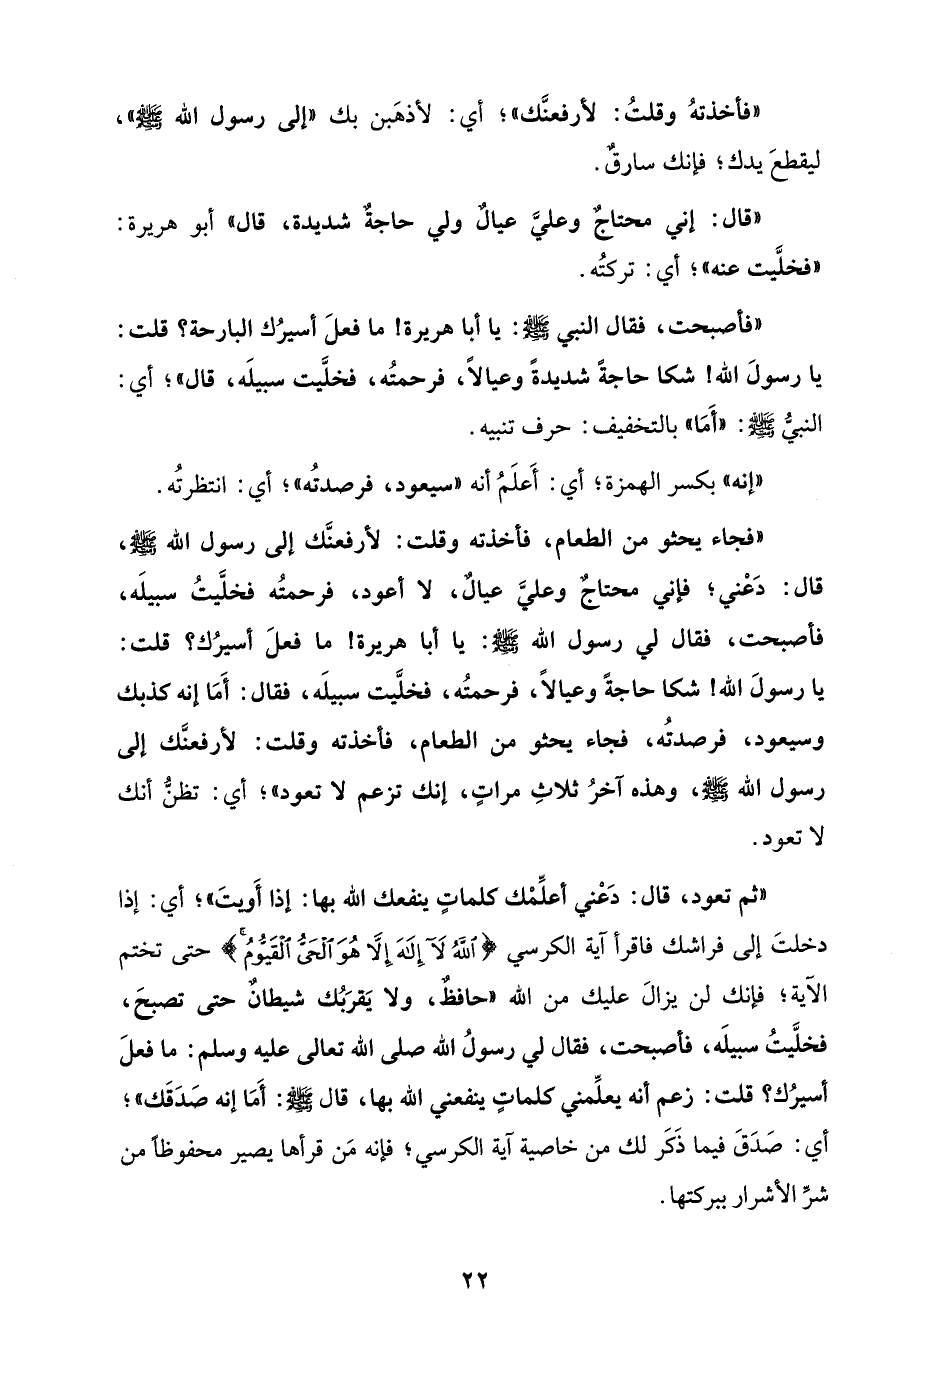 «فأخذتهُ وقلتُ: لأرفعنَّك»؛ أي: لأذهَبن بك «إلى رسول الله ﷺ»،
ليقطعَ يدك؛ فإنك سارقٌ.
«قال: إني محتاجٌ وعليَّ عيالٌ ولي حاجةٌ شديدة، قال» أبو هريرة:
«فخلَّيت عنه»؛ أي: تركتُه.
«فأصبحت، فقال النبي ﷺ: يا أبا هريرة! ما فعلَ أسيرُك البارحة؟ قلت:
يا رسولَ الله! شكا حاجةً شديدةً وعيالاً، فرحمتُه، فخلَّيت سبيلَه، قال»؛ أي:
النبيُّ ﷺ: «أَمَا» بالتخفيف: حرف تنبيه.
«إنه» بكسر الهمزة؛ أي: أَعلَمُ أنه «سيعود، فرصدتُه»؛ أي: انتظرتُه.
«فجاء يحثو من الطعام، فأخذته وقلت: لأرفعنَّك إلى رسول الله ﷺ،
قال: دَعْني؛ فإني محتاجٌ وعليَّ عيالٌ، لا أعود، فرحمتُه فخلَّيتُ سبيلَه،
فأصبحت، فقال لي رسول الله ﷺ: يا أبا هريرة! ما فعلَ أسيرُك؟ قلت:
يا رسولَ الله! شكا حاجةً وعيالاً، فرحمتُه، فخلَّيت سبيلَه، فقال: أَمَا إنه كذبك
وسيعود، فرصدتُه، فجاء يحثو من الطعام، فأخذته وقلت: لأرفعنَّك إلى
رسول الله ﷺ، وهذه آخرُ ثلاثِ مراتٍ، إنك تزعم لا تعود»؛ أي: تظنُّ أنك
لا تعود.
«ثم تعود، قال: دَعْني أعلِّمْك كلماتٍ ينفعك الله بها: إذا أَويتَ»؛ أي: إذا
دخلتَ إلى فراشك فاقرأ آية الكرسي ﴿ٱللَّهُ لَآ إِلَٰهَ إِلَّا هُوَ ٱلْحَيُّ ٱلْقَيُّومُ ۚ﴾ حتى تختم
الآية؛ فإنك لن يزالَ عليك من الله «حافظٌ، ولا يَقرَبُك شيطانٌ حتى تصبحَ،
فخلَّيتُ سبيلَه، فأصبحت، فقال لي رسولُ الله صلى الله تعالى عليه وسلم: ما فعلَ
أسيرُك؟ قلت: زعم أنه يعلِّمني كلماتٍ ينفعني الله بها، قال ﷺ: أَمَا إنه صَدَقَك»؛
أي: صَدَقَ فيما ذَكَر لك من خاصية آية الكرسي؛ فإنه مَن قرأها يصير محفوظاً من
شرِّ الأشرار ببركتها.
٢٢